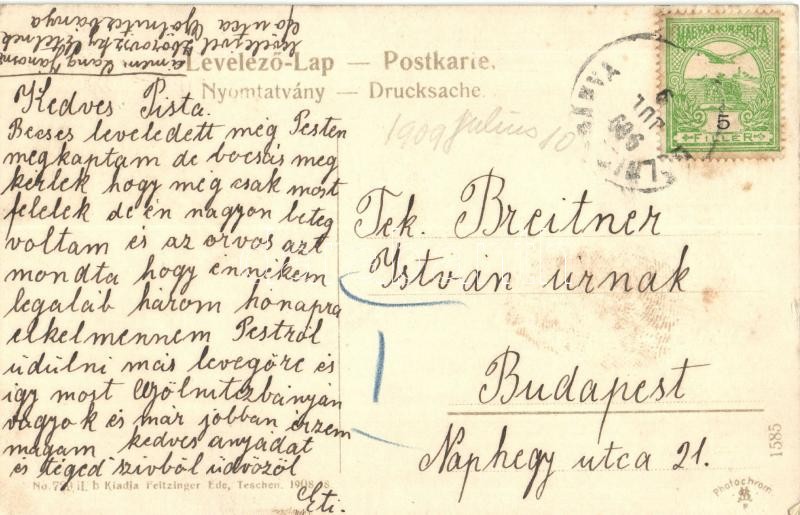 Levelező-Lap — Postkarte.
Nyomtatvány — Drucksache.
MAGYAR KIR. POSTA
5
FILLÉR
909 JUL
1909 Julius 10
Kedves Pista.
Becses leveledett még Pesten
megkaptam de bocsás meg
kérlek hogy még csak most
felelek de én nagyon beteg
voltam és az orvos azt
mondta hogy énnékem
legaláb három hónapra
elkelmennem Pestről
üdülni más levegőre és
így most Gölnitzbányán
vagyok és már jobban érzem
magam kedves anyádat
és téged szívből üdvözöl
Eti.
Tek. Breitner
István úrnak
Budapest
Naphegy utca 21.
No. 729 II. b Kiadja Feitzinger Ede, Teschen. 1908
1585
Photochrom